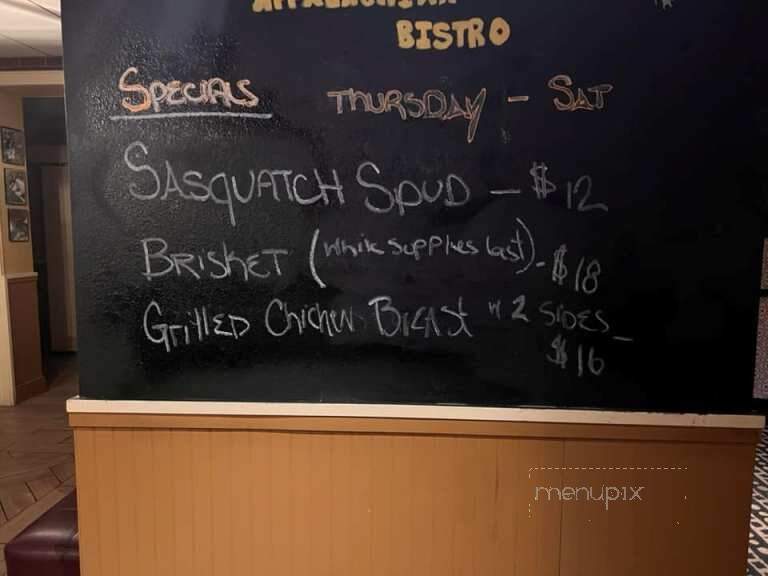 APPALACHIAN
BISTRO
SPECIALS THURSDAY - SAT
SASQUATCH SPUD - $12
BRISKET (while supplies last) - $18
GRILLED CHICKEN BREAST w 2 SIDES -
$16
menupix